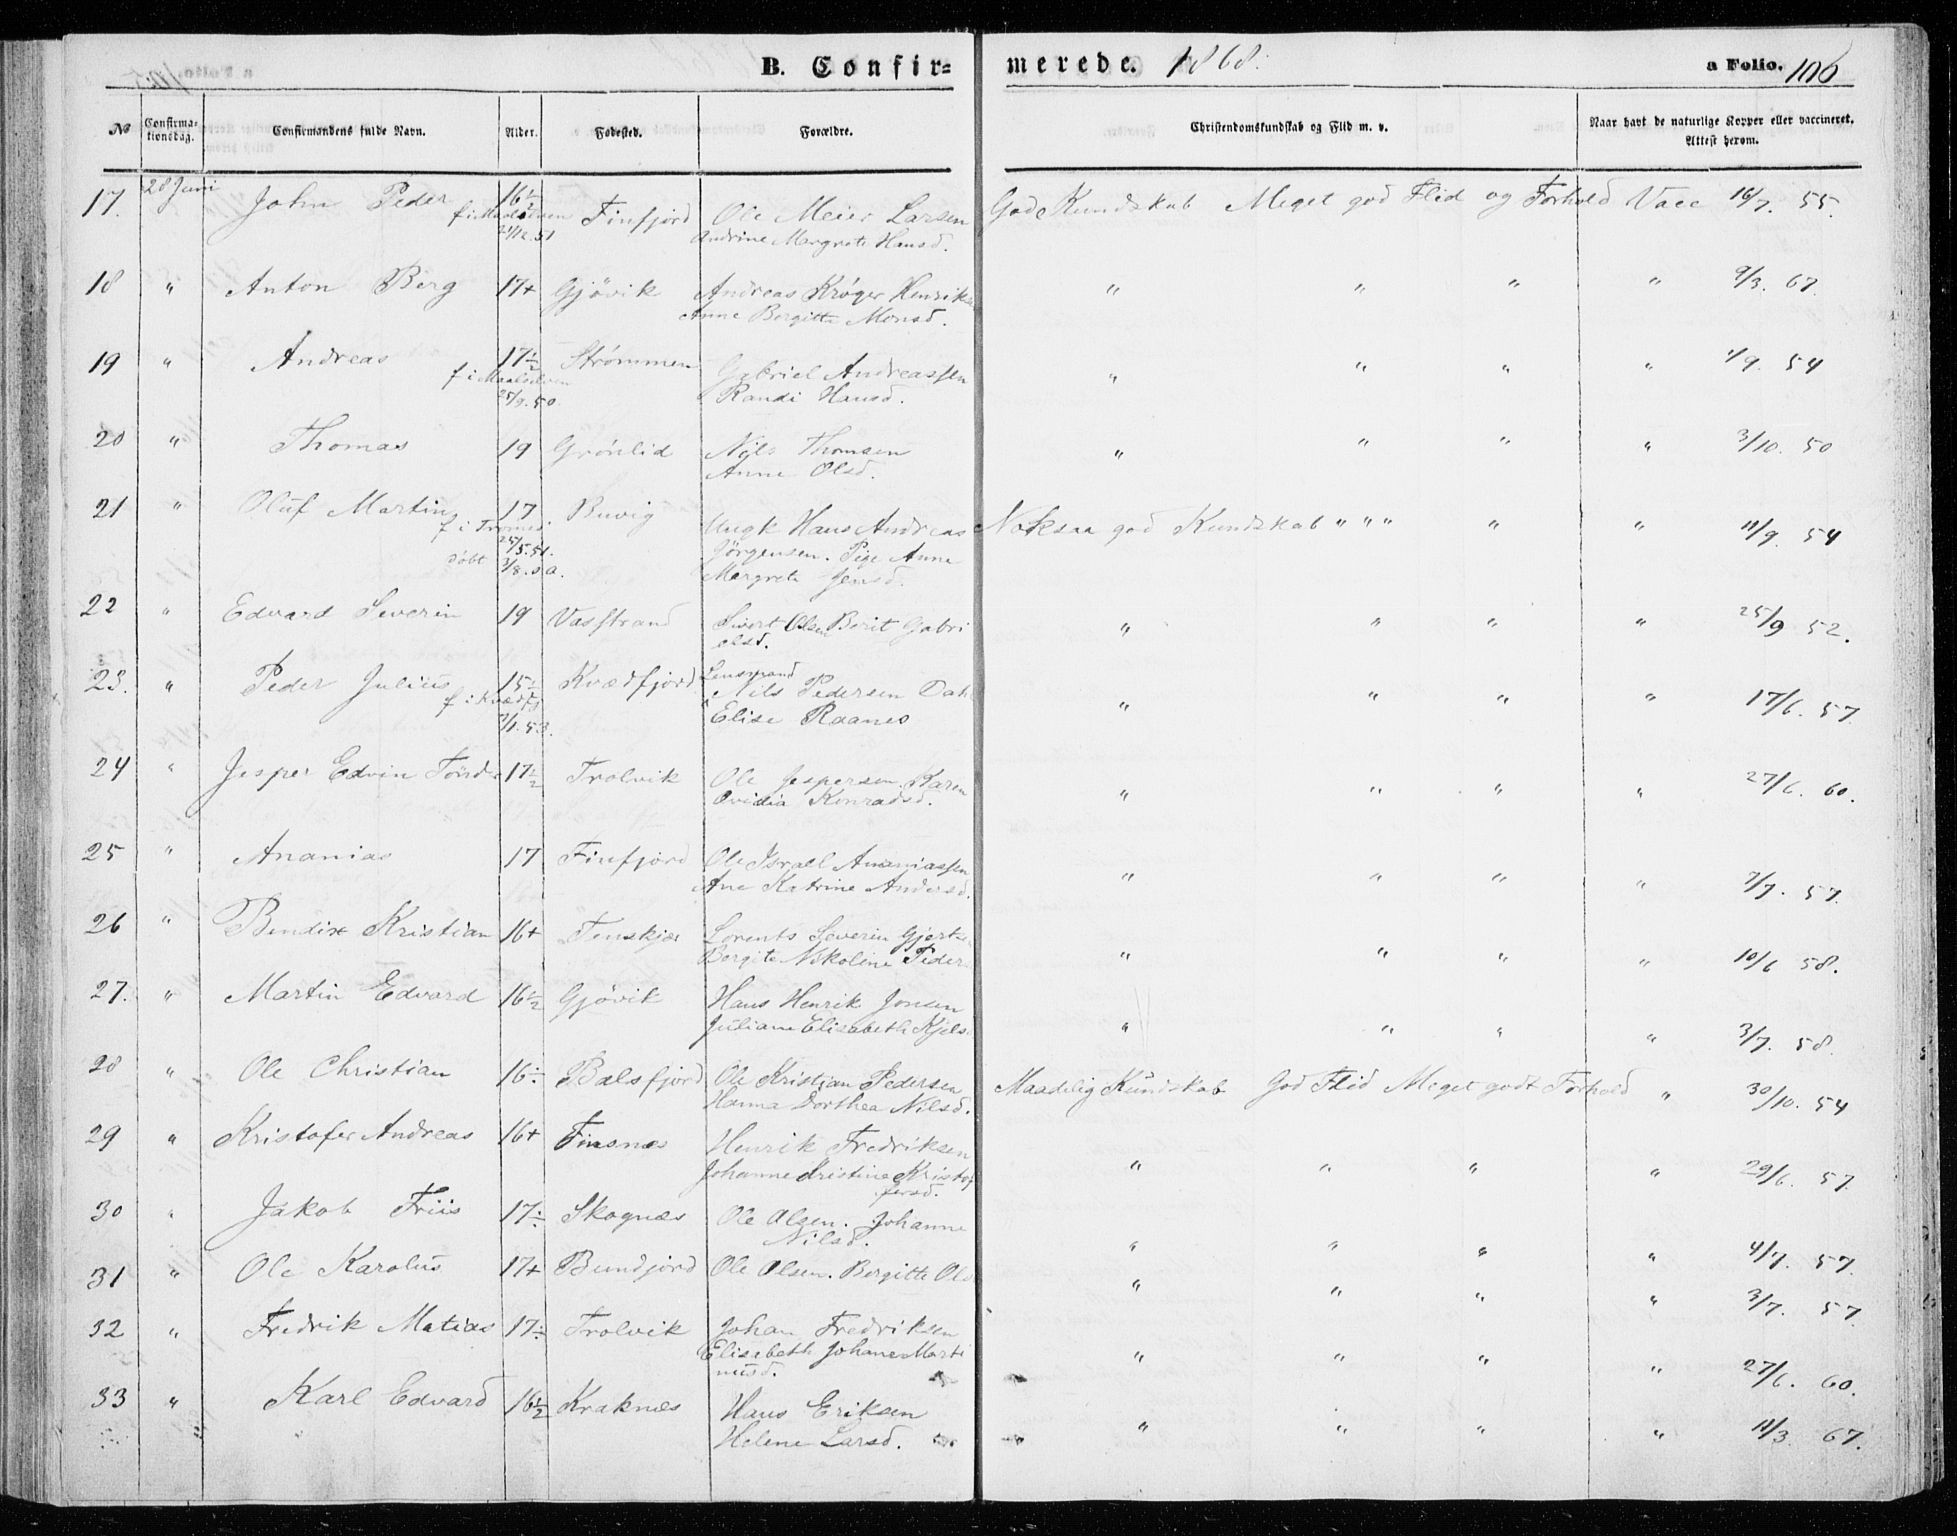 B. Confirmerede. 1868. a Folio. 106
No Confirmationsdag. Confirmandens fulde Navn. Alder. Fødested. Forældre. Christendomskundskab og Flid m. v. Naar havt de naturlige Kopper eller vaccineret. Attest herom.
17. 28 Juni John Peder 16½ Finfjord Ole Meier Larsen God Kundskab Meget god Flid og Forhold Vacc 16/7. 55.
f i Maalselven 21/12.51 Andrine Margrete Hansd.
18 " Anton Berg 17+ Gjövik Andreas Krøger Henriks " " " " 9/3. 67.
Anne Bergitte Monsd.
19 " Andreas 17½ Strömmen Gabriel Andreassen " " " " 1/9. 54
f i Maalselven 25/9.50. Randi Hansd.
20 " Thomas 19 Grönlid Nils Thomsen " " " " 3/10. 50
Anne Olsd.
21 " Oluf Martin 17 Buvig Ungk Hans Andreas Noksaa god Kundskab " " " " " 11/9. 54
f i Tromsö 25/5.51. Jörgensen. Pige Anne
döbt 3/8. s.a. Margrete Jensd.
22 " Edvard Severin 19 Vasstrand Sivert Olsen Berit Gabri " " " " 25/9 52.
elsd.
23. " Peder Julius 15½ Kvædfjord Lensmand
f i Kvædfj 2/1.53. Nils Pedersen Dah " " " " 17/6. 57.
Elise Raanes
24 " Jesper Edvin Tönder 17½ Trolvik Ole Jespersen. Karen " " " " 27/6. 60.
Ovidia Konradsd.
25 " Ananias 17 Finfjord Ole Israel Ananiassen " " " " 7/7. 57.
Ane Katrine Andersd.
26 " Bendix Kristian 16+ Tenskjær Lorents Severin Gjerts " " " " 10/6 58.
Bergite Nikoline Peder
27. " Martin Edvard 16½ Gjövik Hans Henrik Jonsen " " " " 3/7. 58.
Juliane Elisabeth Kjels
28 " Ole Christian 16÷ Balsfjord Ole Kristian Pedersen Maadelig Kundskab God Flid Meget godt Forhold " 30/10. 54
Hanna Dorthea Nilsd.
29 " Kristofer Andreas 16+ Finsnæs Henrik Fredriksen " " " " 29/6. 57.
Johanne Kristine Kristof
fersd.
30 " Jakob Friis 17÷ Skognæs Ole Olsen. Johanne " " " " 4/7. 57.
Nilsd.
31 " Ole Karolus 17+ Bundjord Ole Olsen. Bergitte Ols " " " " 3/7. 57.
32 " Fredrik Matias 17÷ Trolvik Johan Fredriksen " " " " 27/6. 60.
Elisabeth Johane Marti
nusd.
33 " Karl Edvard 16½ Kraknæs Hans Eriksen " " " " 11/3. 67.
Helene Larsd.